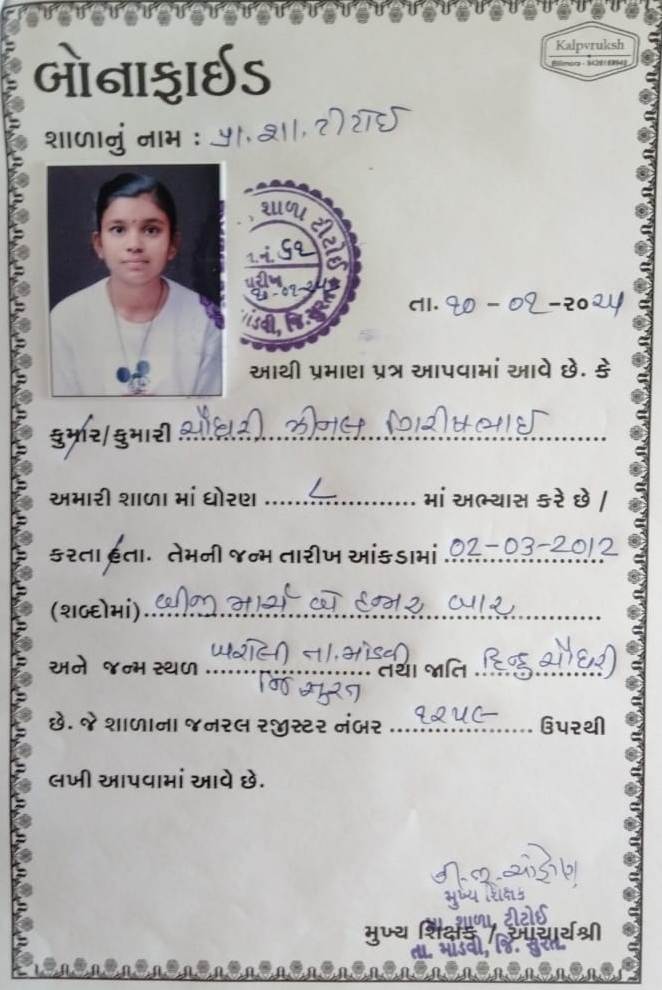 Kalpvruksh
Bilimora - 9426189948
બોનાફાઈડ
શાળાનું નામ : પ્રા. શા. ટીટોઈ
શાળા ટીટોઈ
.નં. ૬૧
તારીખ
૧૦-૦૧-૨૫
માંડવી, જિ. સુરત
તા. ૧૦ - ૦૧ - ૨૦૨૫
આથી પ્રમાણ પત્ર આપવામાં આવે છે. કે
કુમાર/કુમારી ચૌધરી ઝીનલ ગિરીષભાઈ
અમારી શાળા માં ધોરણ ૮ માં અભ્યાસ કરે છે /
કરતા હતા. તેમની જન્મ તારીખ આંકડામાં 02-03-2012
(શબ્દોમાં) બીજી માર્ચ બે હજાર બાર
અને જન્મ સ્થળ ખરોલી તા. માંડવી તથા જાતિ હિન્દુ ચૌધરી
જિ સુરત
છે. જે શાળાના જનરલ રજીસ્ટર નંબર ૧૨૫૯ ઉપરથી
લખી આપવામાં આવે છે.
મુખ્ય શિક્ષક
પ્રા. શાળા, ટીટોઈ
મુખ્ય શિક્ષક / આચાર્યશ્રી
તા. માંડવી, જિ. સુરત.